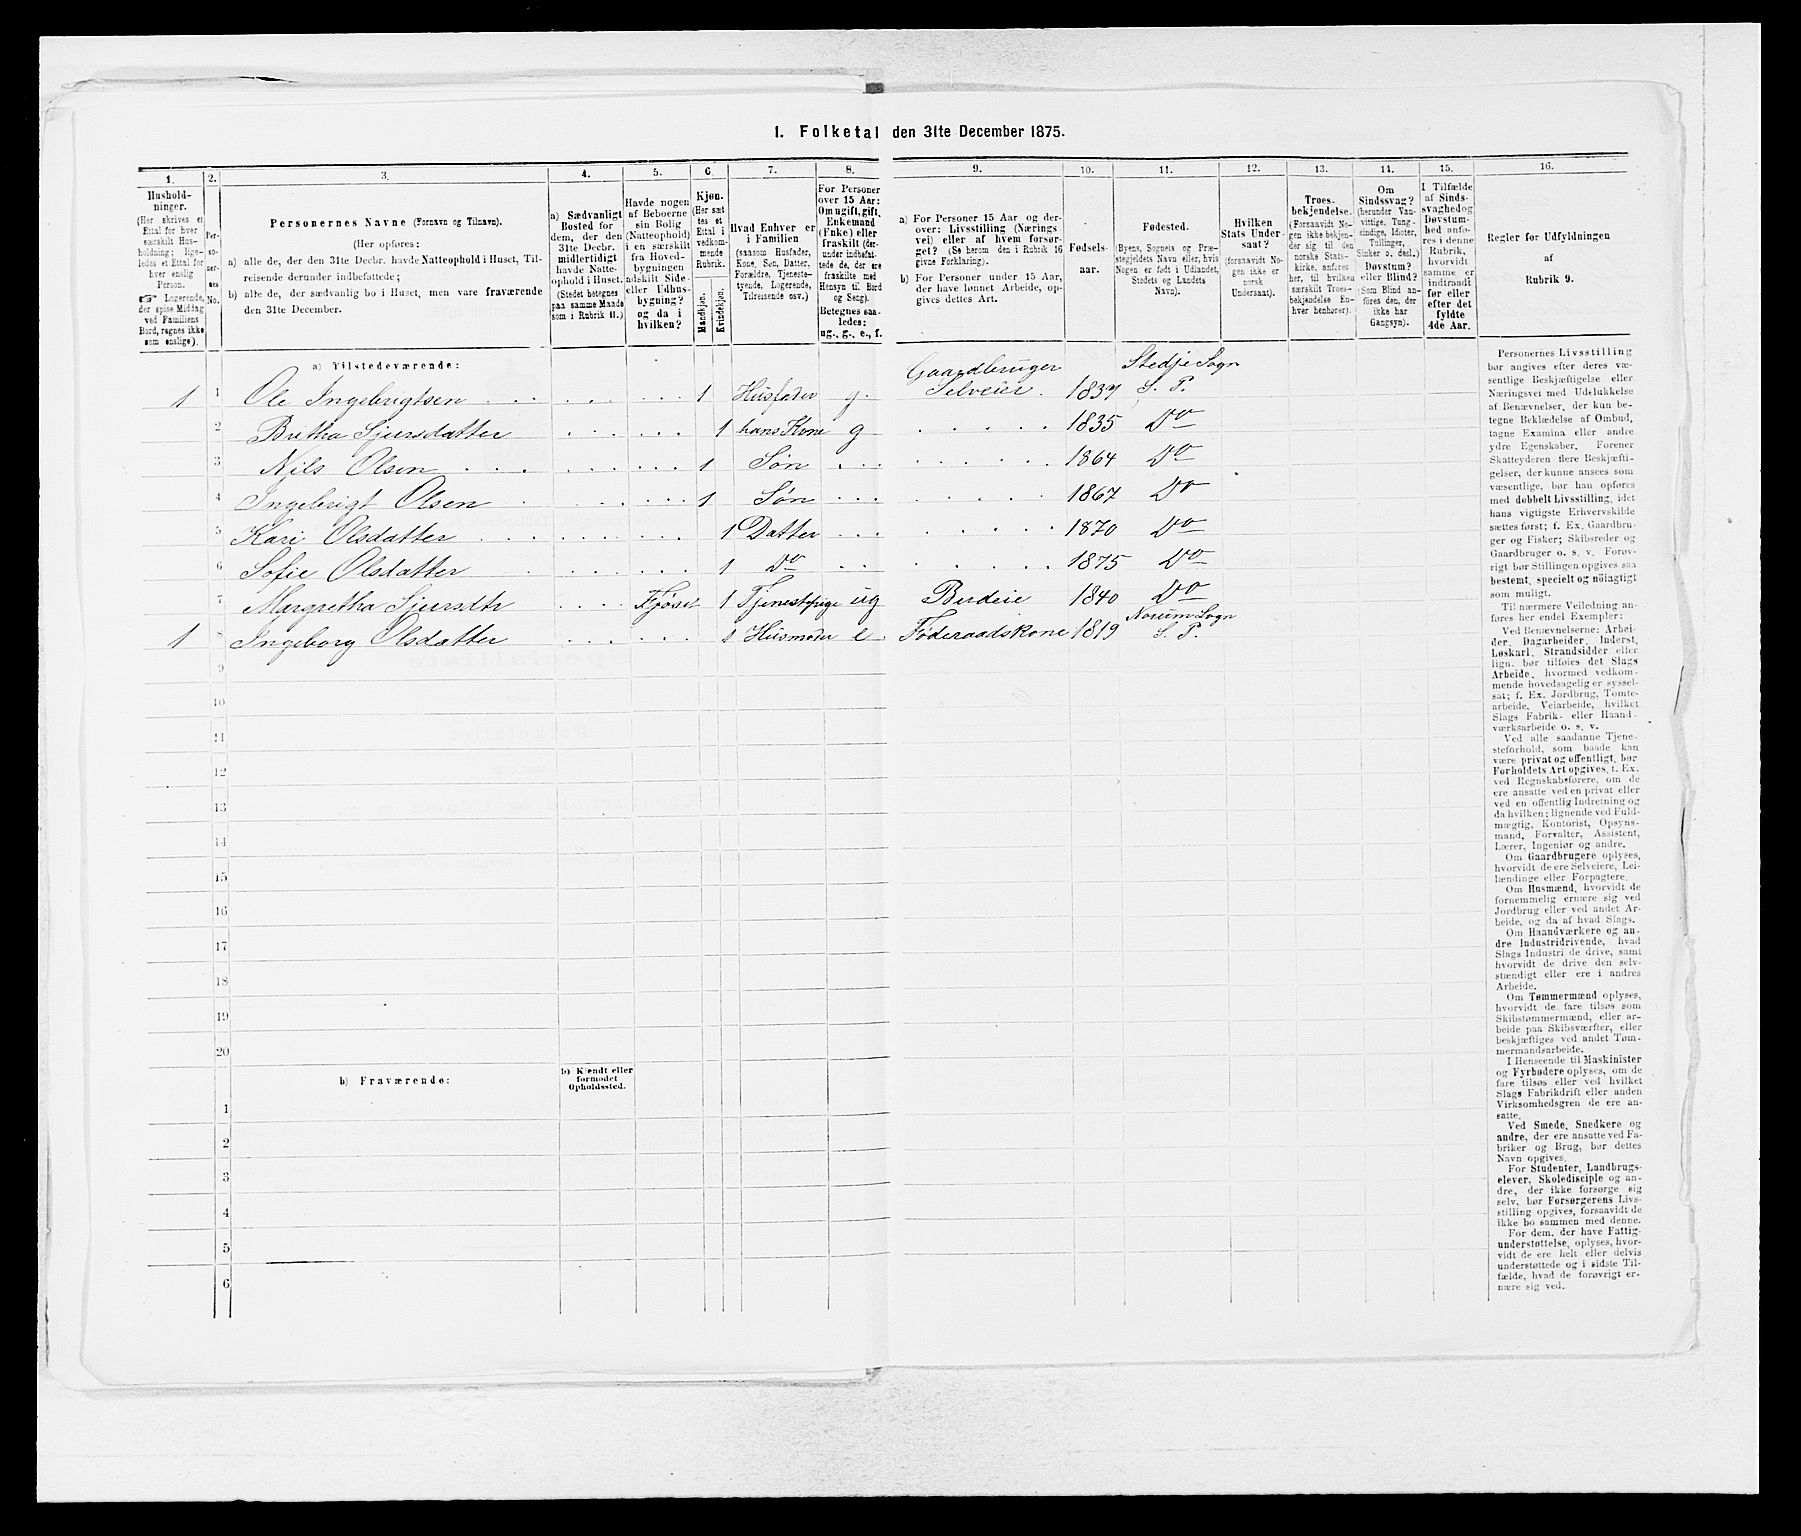 1. Folketal den 31te December 1875.
1. 2. 3. 4. 5. 6. 7. 8. 9. 10. 11. 12. 13. 14. 15. 16.
Hushold-
ninger.
(Her skrives et
Ettal for hver
særskilt Hus-
holdning; lige-
ledes et Ettal for
hver enslig
Person.
☞ Logerende,
der spise Middag
ved Familiens
Bord, regnes ikke
som enslige).
Per-
so-
ner-
nes
No.
Personernes Navne (Fornavn og Tilnavn).
(Her opføres:
a) alle de, der den 31te Decbr. havde Natteophold i Huset, Til-
reisende derunder indbefattede;
b) alle de, der sædvanlig bo i Huset, men vare fraværende
den 31te December.
a) Sædvanligt
Bosted for
dem, der den
31te Decbr.
midlertidigt
havde Natte-
ophold i Huset.
(Stedet betegnes
paa samme Maade
som i Rubrik 11.)
Havde nogen
af Beboerne
sin Bolig
(Natteophold)
i en særskilt
fra Hoved-
bygningen
adskilt Side-
eller Udhus-
bygning?
og da i
hvilken?
Kjøn.
(Her sæt-
tes et
Ettal i
vedkom-
mende
Rubrik.
Mandkjøn.
Kvindekjøn.
Hvad Enhver er
i Familien
(saasom Husfader,
Kone, Søn, Datter,
Forældre, Tjeneste-
tyende, Logerende,
Tilreisende osv.)
For Personer
over 15 Aar:
Om ugift, gift,
Enkemand
(Enke) eller
fraskilt (der-
under indbefat-
tede de, der ere
fraskilte med
Hensyn til Bord
og Seng).
Betegnes saa-
ledes:
ug., g., e., f.
a) For Personer 15 Aar og der-
over: Livsstilling (Nærings
vei) eller af hvem forsør-
get? (Se herom den i Rubrik 16
givne Forklaring).
b) For Personer under 15 Aar,
der have lønnet Arbeide, op-
gives dettes Art.
Fødsels-
aar.
Fødested.
(Byens, Sognets og Præ-
stegjeldets Navn eller, hvis
Nogen er født i Udlandet,
Stedets og Landets
Navn).
Hvilken
Stats Under-
saat?
(forsaavidt No-
gen ikke er
norsk
Undersaat).
Troes-
bekjendelse.
(Forsaavidt No-
gen ikke bekjen-
der sig til den
norske Stats-
kirke, anføres
her, til hvilken
særskilt Troes-
bekjendelse En-
hver henhører).
Om
Sindssvag?
(herunder Van-
vittige, Tung-
sindige, Idioter,
Tullinger,
Sinker o. desl.)
Døvstum?
eller Blind?
(Som Blind an-
føres den, der
ikke har
Gangsyn).
I Tilfælde
af Sinds-
svaghed og
Døvstum-
hed anfø-
res i denne
Rubrik,
hvorvidt
samme er
indtraadt
før eller
efter det
fyldte
4de Aar.
Regler for Udfyldningen
af
Rubrik 9.
a) Tilstedeværende:
1 1 Ole Ingebrigtsen 1 Husfader g. Gaardbruger Selveier 1837 Stedje Sogn S. P.
2 Britha Sjursdatter 1 hans Kone g 1835 Do
3 Nils Olsen 1 Søn 1864 Do
4 Ingebrigt Olsen 1 Søn 1867 Do
5 Kari Olsdatter 1 Datter 1870 Do
6 Sofie Olsdatter 1 Do 1875 Do
7 Margretha Sjursdtr Fjøset 1 Tjenestepige ug Budeie 1840 Do
1 8 Ingeborg Olsdatter 1 Husmoder e. Føderaadskone 1819 Norum Sogn S. P.
9
10
11
12
13
14
15
16
17
18
19
20
b) Fraværende:
b) Kjendt eller
formodet
Opholdssted.
1
2
3
4
5
6
Personernes Livsstilling
bør angives efter deres væ-
sentlige Beskjæftigelse eller
Næringsvei med Udelukkelse
af Benævnelser, der kun be-
tegne Beklædelse af Ombud,
tagne Examina eller andre
ydre Egenskaber. Forener
Skatteyderen flere Beskjæfti-
gelser, der kunne ansees som
væsentlige, bør han opføres
med dobbelt Livsstilling, idet
hans vigtigste Erhvervskilde
sættes først; f. Ex. Gaardbru-
ger og Fisker; Skibsreder og
Gaardbruger o. s. v. Forøv-
rigt bør Stillingen opgives saa
bestemt, specielt og nøiagtigt
som muligt.
Til nærmere Veiledning an-
føres her endel Exempler:
Ved Benævnelserne: Arbei-
der, Dagarbeider, Inderst,
Løskarl, Strandsidder eller
lign. bør tilføies det Slags
Arbeide, hvormed vedkom-
mende hovedsagelig er syssel-
sat; f. Ex. Jordbrug, Tomte-
arbeide, Veiarbeide, hvilket
Slags Fabrik- eller Haand-
værksarbeide o. s. v.
Ved alle saadanne Tjene-
steforhold, som baade kan
være privat og offentligt, bør
Forholdets Art opgives, t. Ex.
ved Regnskabsførere, om de
ere ansatte ved en privat eller
ved en offentlig Indretning og
da hvilken; lignende ved Fuld-
mægtig, Kontorist, Opsyns-
mand, Forvalter, Assistent,
Lærer, Ingeniør og andre.
Om Gaardbrugere oplyses,
hvorvidt de ere Selveiere, Lei-
lændinge eller Forpagtere.
Om Husmænd, hvorvidt de
fornemmelig ernære sig ved
Jordbrug eller ved andet Ar-
beide, og da af hvad Slags.
Om Haandværkere og an-
dre Industridrivende, hvad
Slags Industri de drive, samt
hvorvidt de drive den selv-
stændigt eller ere i andres
Arbeide.
Om Tømmermænd oplyses,
hvorvidt de fare tilsøs som
Skibstømmermænd, eller ar-
beide paa Skibsværfter, eller
beskjæftiges ved andet Tøm-
mermandsarbeide.
I Henseende til Maskinister
og Fyrbødere oplyses, om de
fare tilsøs eller ved hvilket
Slags Fabrikdrift eller anden
Virksomhedsgren de ere an-
satte.
Ved Smede, Snedkere og
andre, der ere ansatte ved Fa-
briker og Brug, bør dettes
Navn opgives.
For Studenter, Landbrugs-
elever, Skoledisciple og an-
dre, der ikke forsørge sig
selv, bør Forsørgerens Livs-
stilling opgives, forsaavidt de
ikke bo sammen med denne.
For dem, der have Fattig-
understøttelse, oplyses, hvor-
vidt de ere helt eller delvis
understøttede og i sidste Til-
fælde, hvad de forøvrigt er-
nære sig ved.